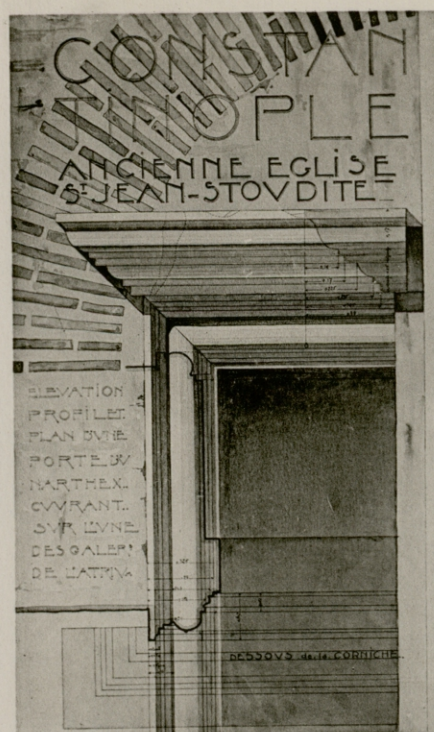 CONSTAN
TINOPLE
ANCIENNE EGLISE
ST JEAN-STOVDITE
ELEVATION
PROFIL ET
PLAN D'VNE
PORTE DV
NARTHEX
OVVRANT
SVR L'VNE
DES GALERI
DE L'ATRIV
DESSOUS de la CORNICHE